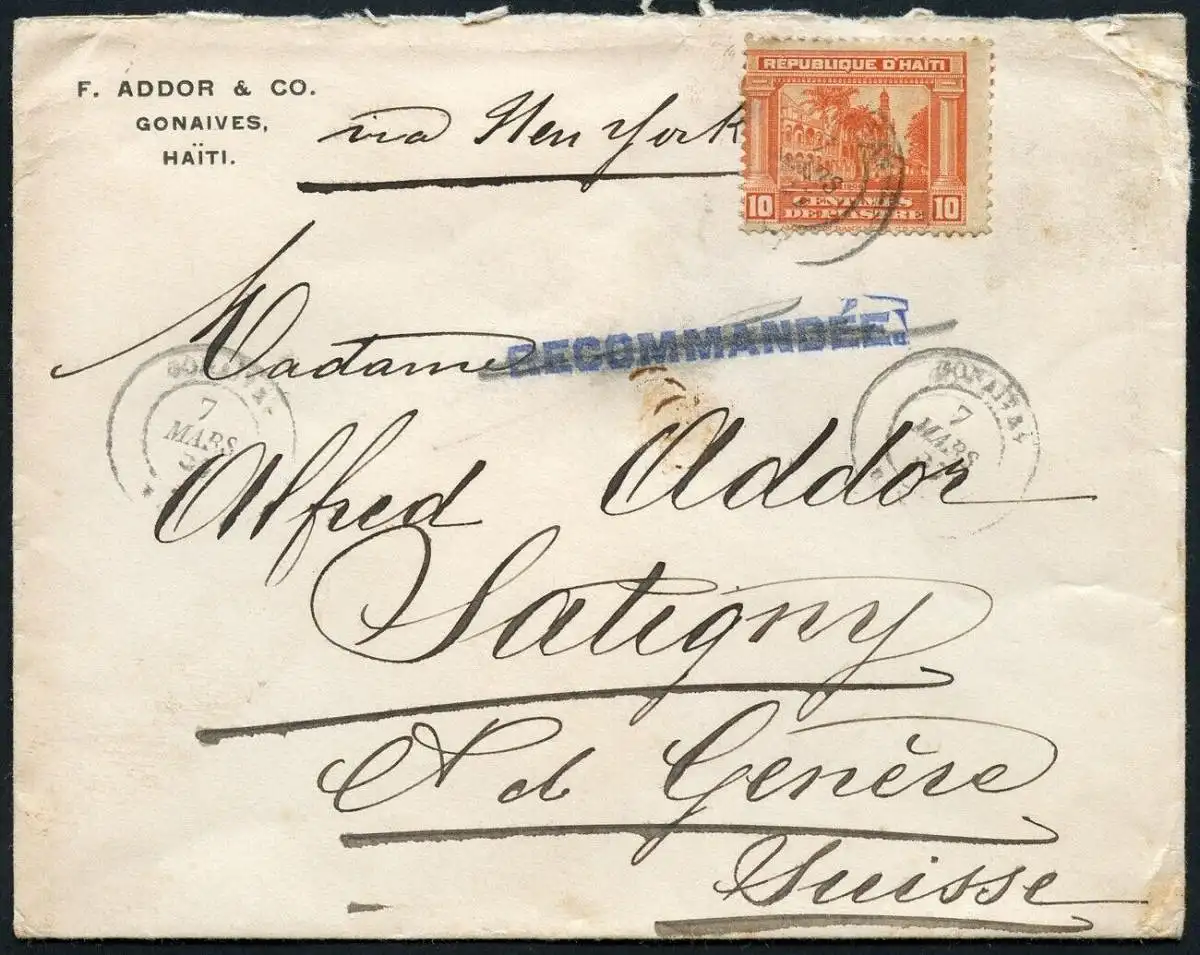 F. ADDOR & CO.
GONAIVES,
HAÏTI.
via New York
RÉPUBLIQUE D'HAÏTI
10 CENTIMES 10
DE PIASTRE
MARS
RECOMMANDÉE
Madame
GONAIVES
7
MARS
GONAIVES
7
MARS
Alfred Addor
Satigny
Ct de Genève
Suisse